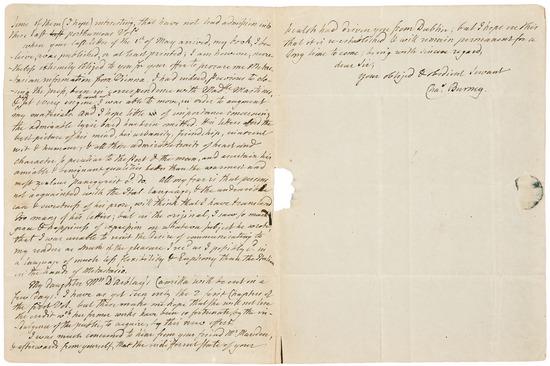 some of them (I hope) interesting, that have not had admission into
these last posthumous Vols
When your last letter of the 1st of May arrived, my book, I be-
lieve, was published, or at least printed; I am however, never-
theless extremely obliged to you for your offer to procure me Metas-
tasian information from Vienna. I had indeed, previous to clo-
sing the press, been in correspondence with Madlle Martines,
& set every engine I was able to move, in order to augment
my materials. And I hope little of importance concerning
the admirable lyric bard has been omitted. His letters afford the
best picture of his mind, his urbanity, friendship, innocent
wit & humour, & all those admirable traits of heart and
character so peculiar to the Poet & the man, and ascertain his
amiable & benignant qualities better than the warmest and
most zealous Panegyrist cd do. All my fear is that persons
not acquainted with the Ital. language, & the undescribable
ease & sweetness of his prose, will think that I have translated
too many of his letters; but in the original, I saw so much
grace & happiness of expression on whatever subject he wrote,
that I was unable to resist the desire of communicating to
my readers as much of the pleasure I recd as I possibly cd in
a language of much less flexibility & Euphony than the Italian
in the hands of Metastasio.
My daughter Mrs D'arblay's Camilla will be out in a
few days. I have as yet seen only the 2 first Chapters of
the first Vol. but these make me hope that she will not lose
the credit wch her former works have been so fortunate, by the in-
dulgence of the public, to acquire, by this new effort
I was much concerned to hear from your friend Mr Marsden,
& afterwards from yourself, that the indifferent state of your
health had driven you from Dublin; but I hope neither
that it is reestablished & will remain permanent for a
long time to come, being with sincere regard,
dear Sir,
Your obliged & obedient Servant
Chas Burney.